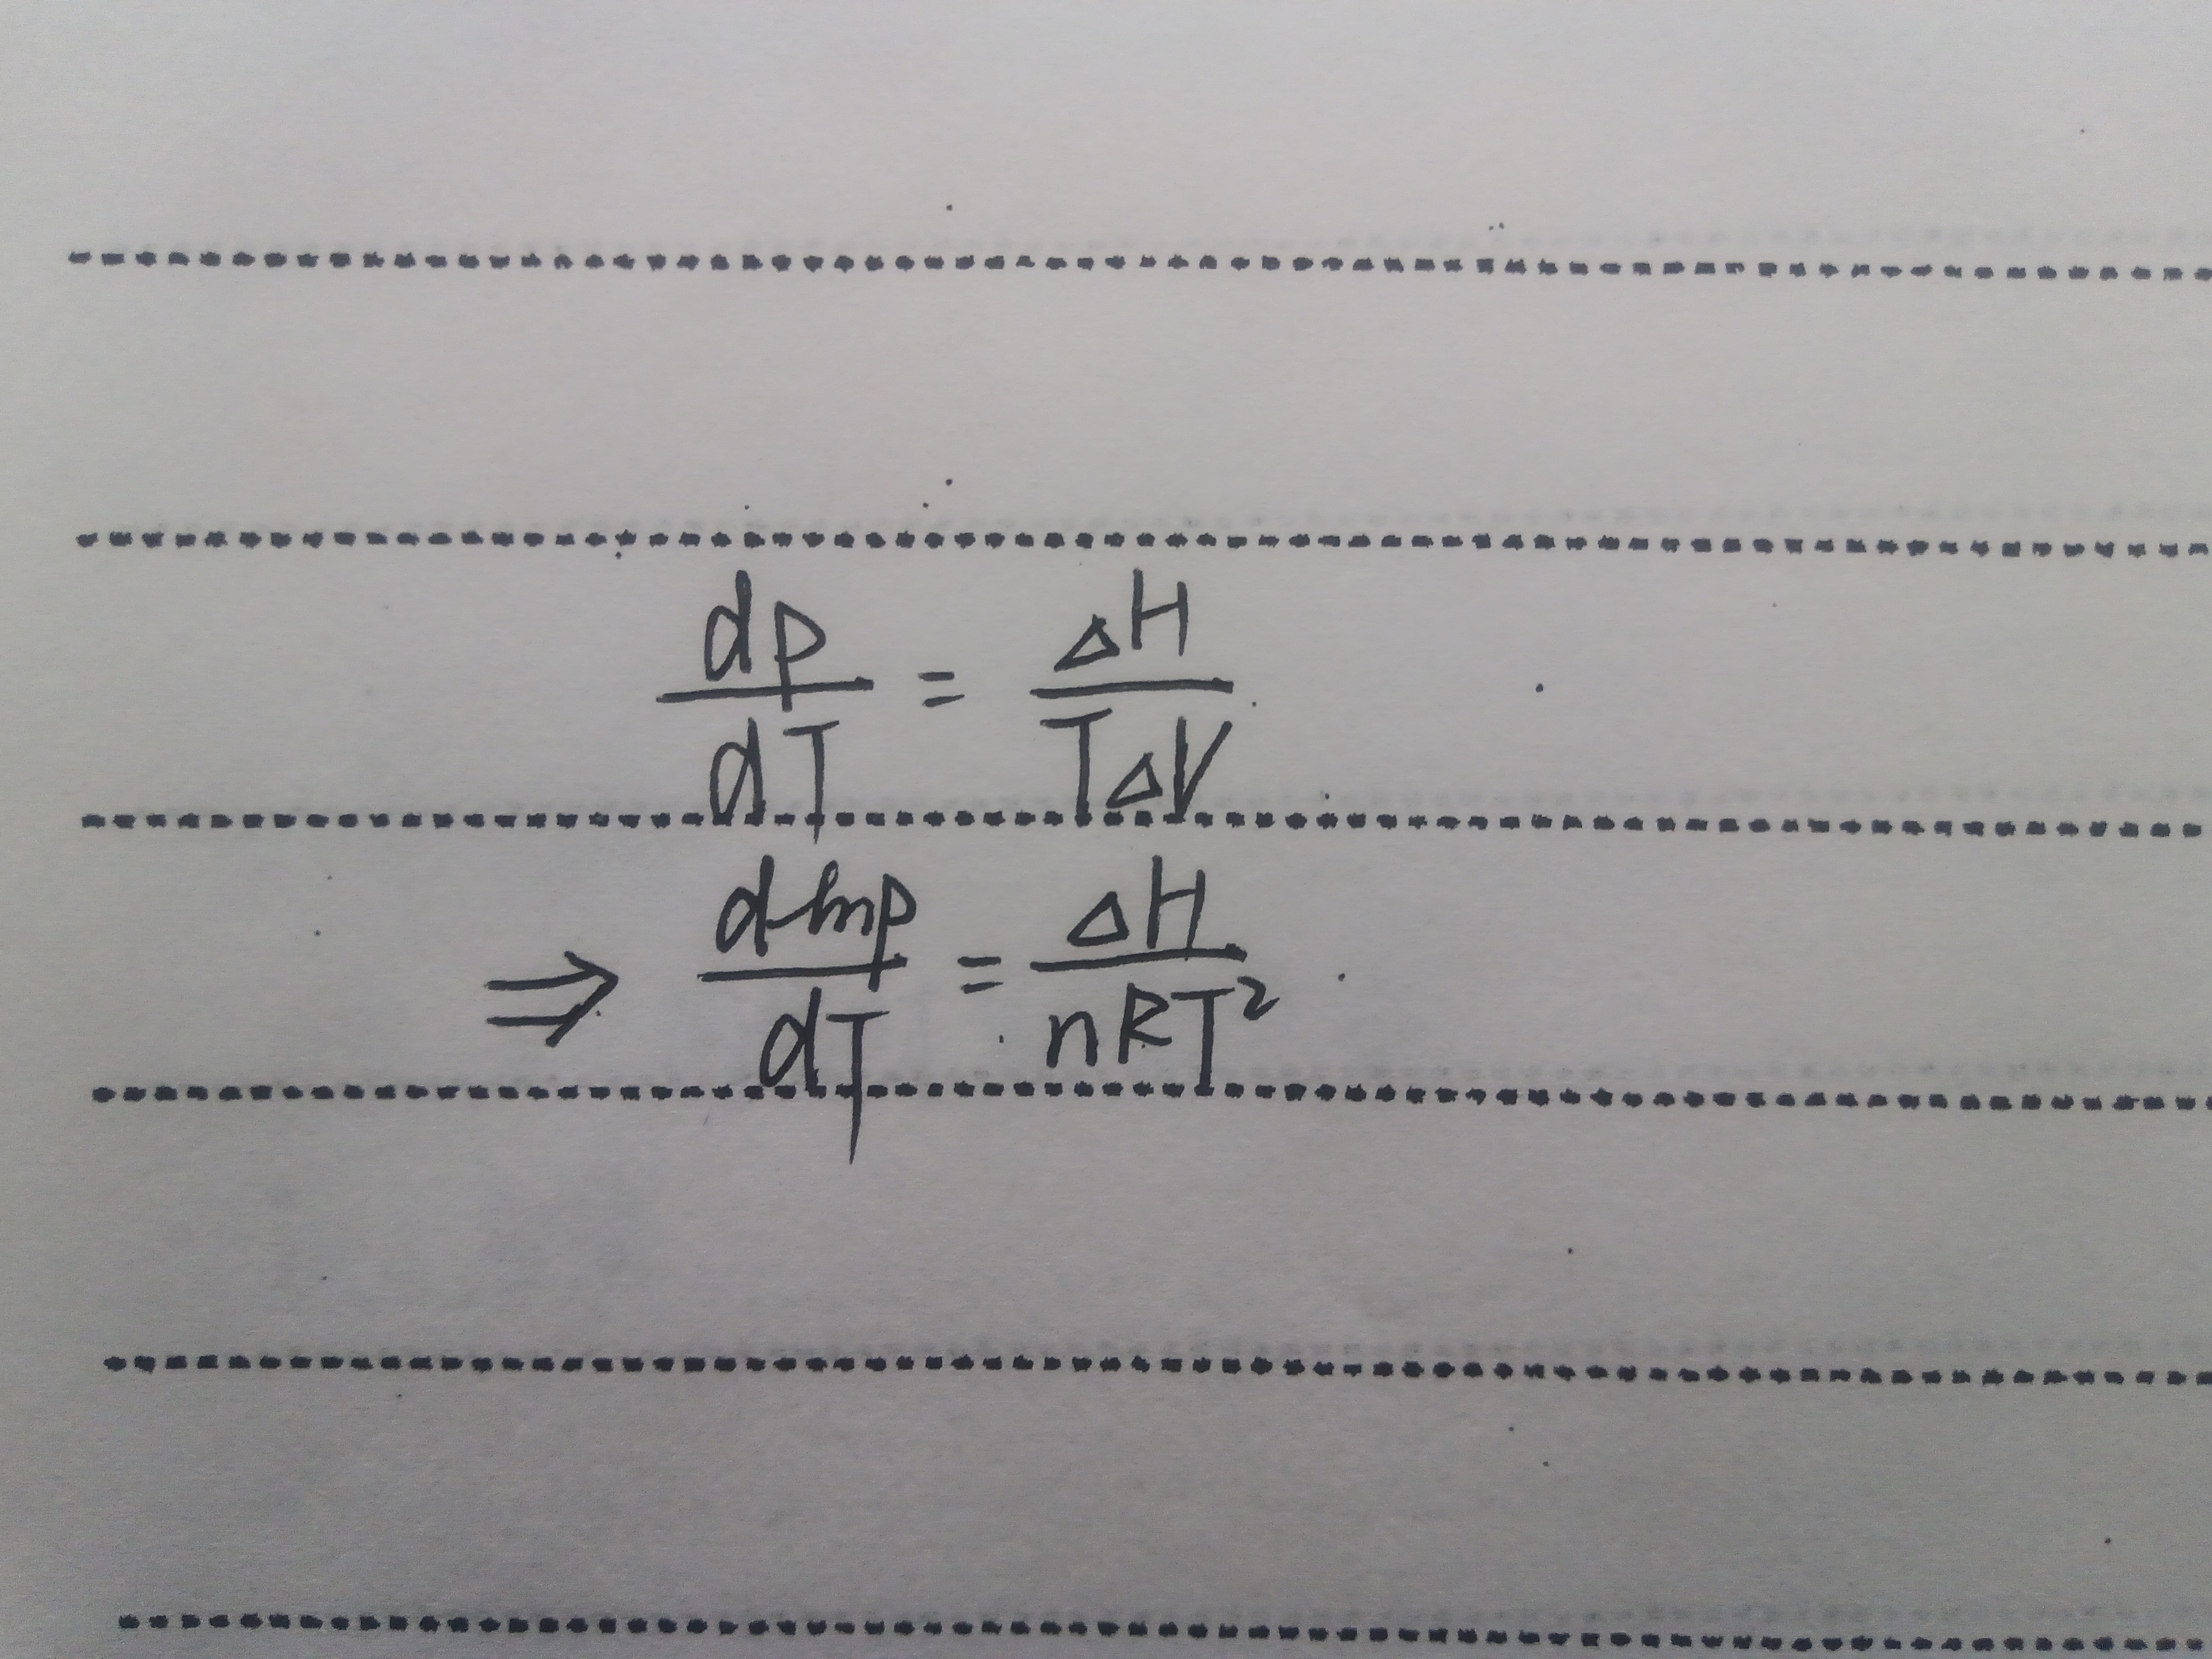 dp/dT = ΔH/TΔV
⇒ dlnp/dT = ΔH/nRT²